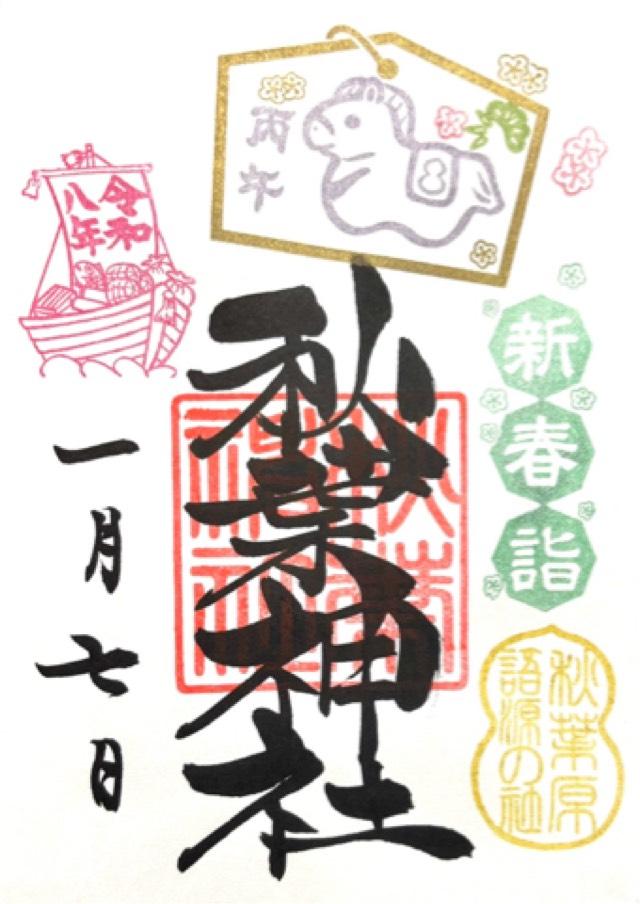 丙午
令和
八年
新春詣
秋葉神社
秋葉
神社
秋葉原
語源の社
一月七日